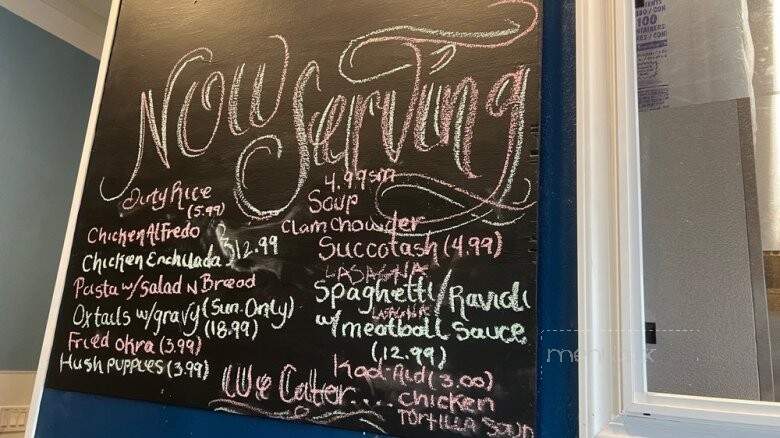 Now Serving
Dirty Rice
(5.99)
Chicken Alfredo
Chicken Enchilada
12.99
Pasta w/ Salad N Bread
Oxtails w/gravy (Sun. Only)
(18.99)
Fried Okra (3.99)
Hush Puppies (3.99)
4.99sm
Soup
Clam Chowder
Succotash (4.99)
LASAGNA
Spaghetti/Ravioli
LASAGNA
w/ meatball Sauce
(12.99)
Kool-Aid (3.00)
We Cater....
chicken
TORTILLA SOUP
100